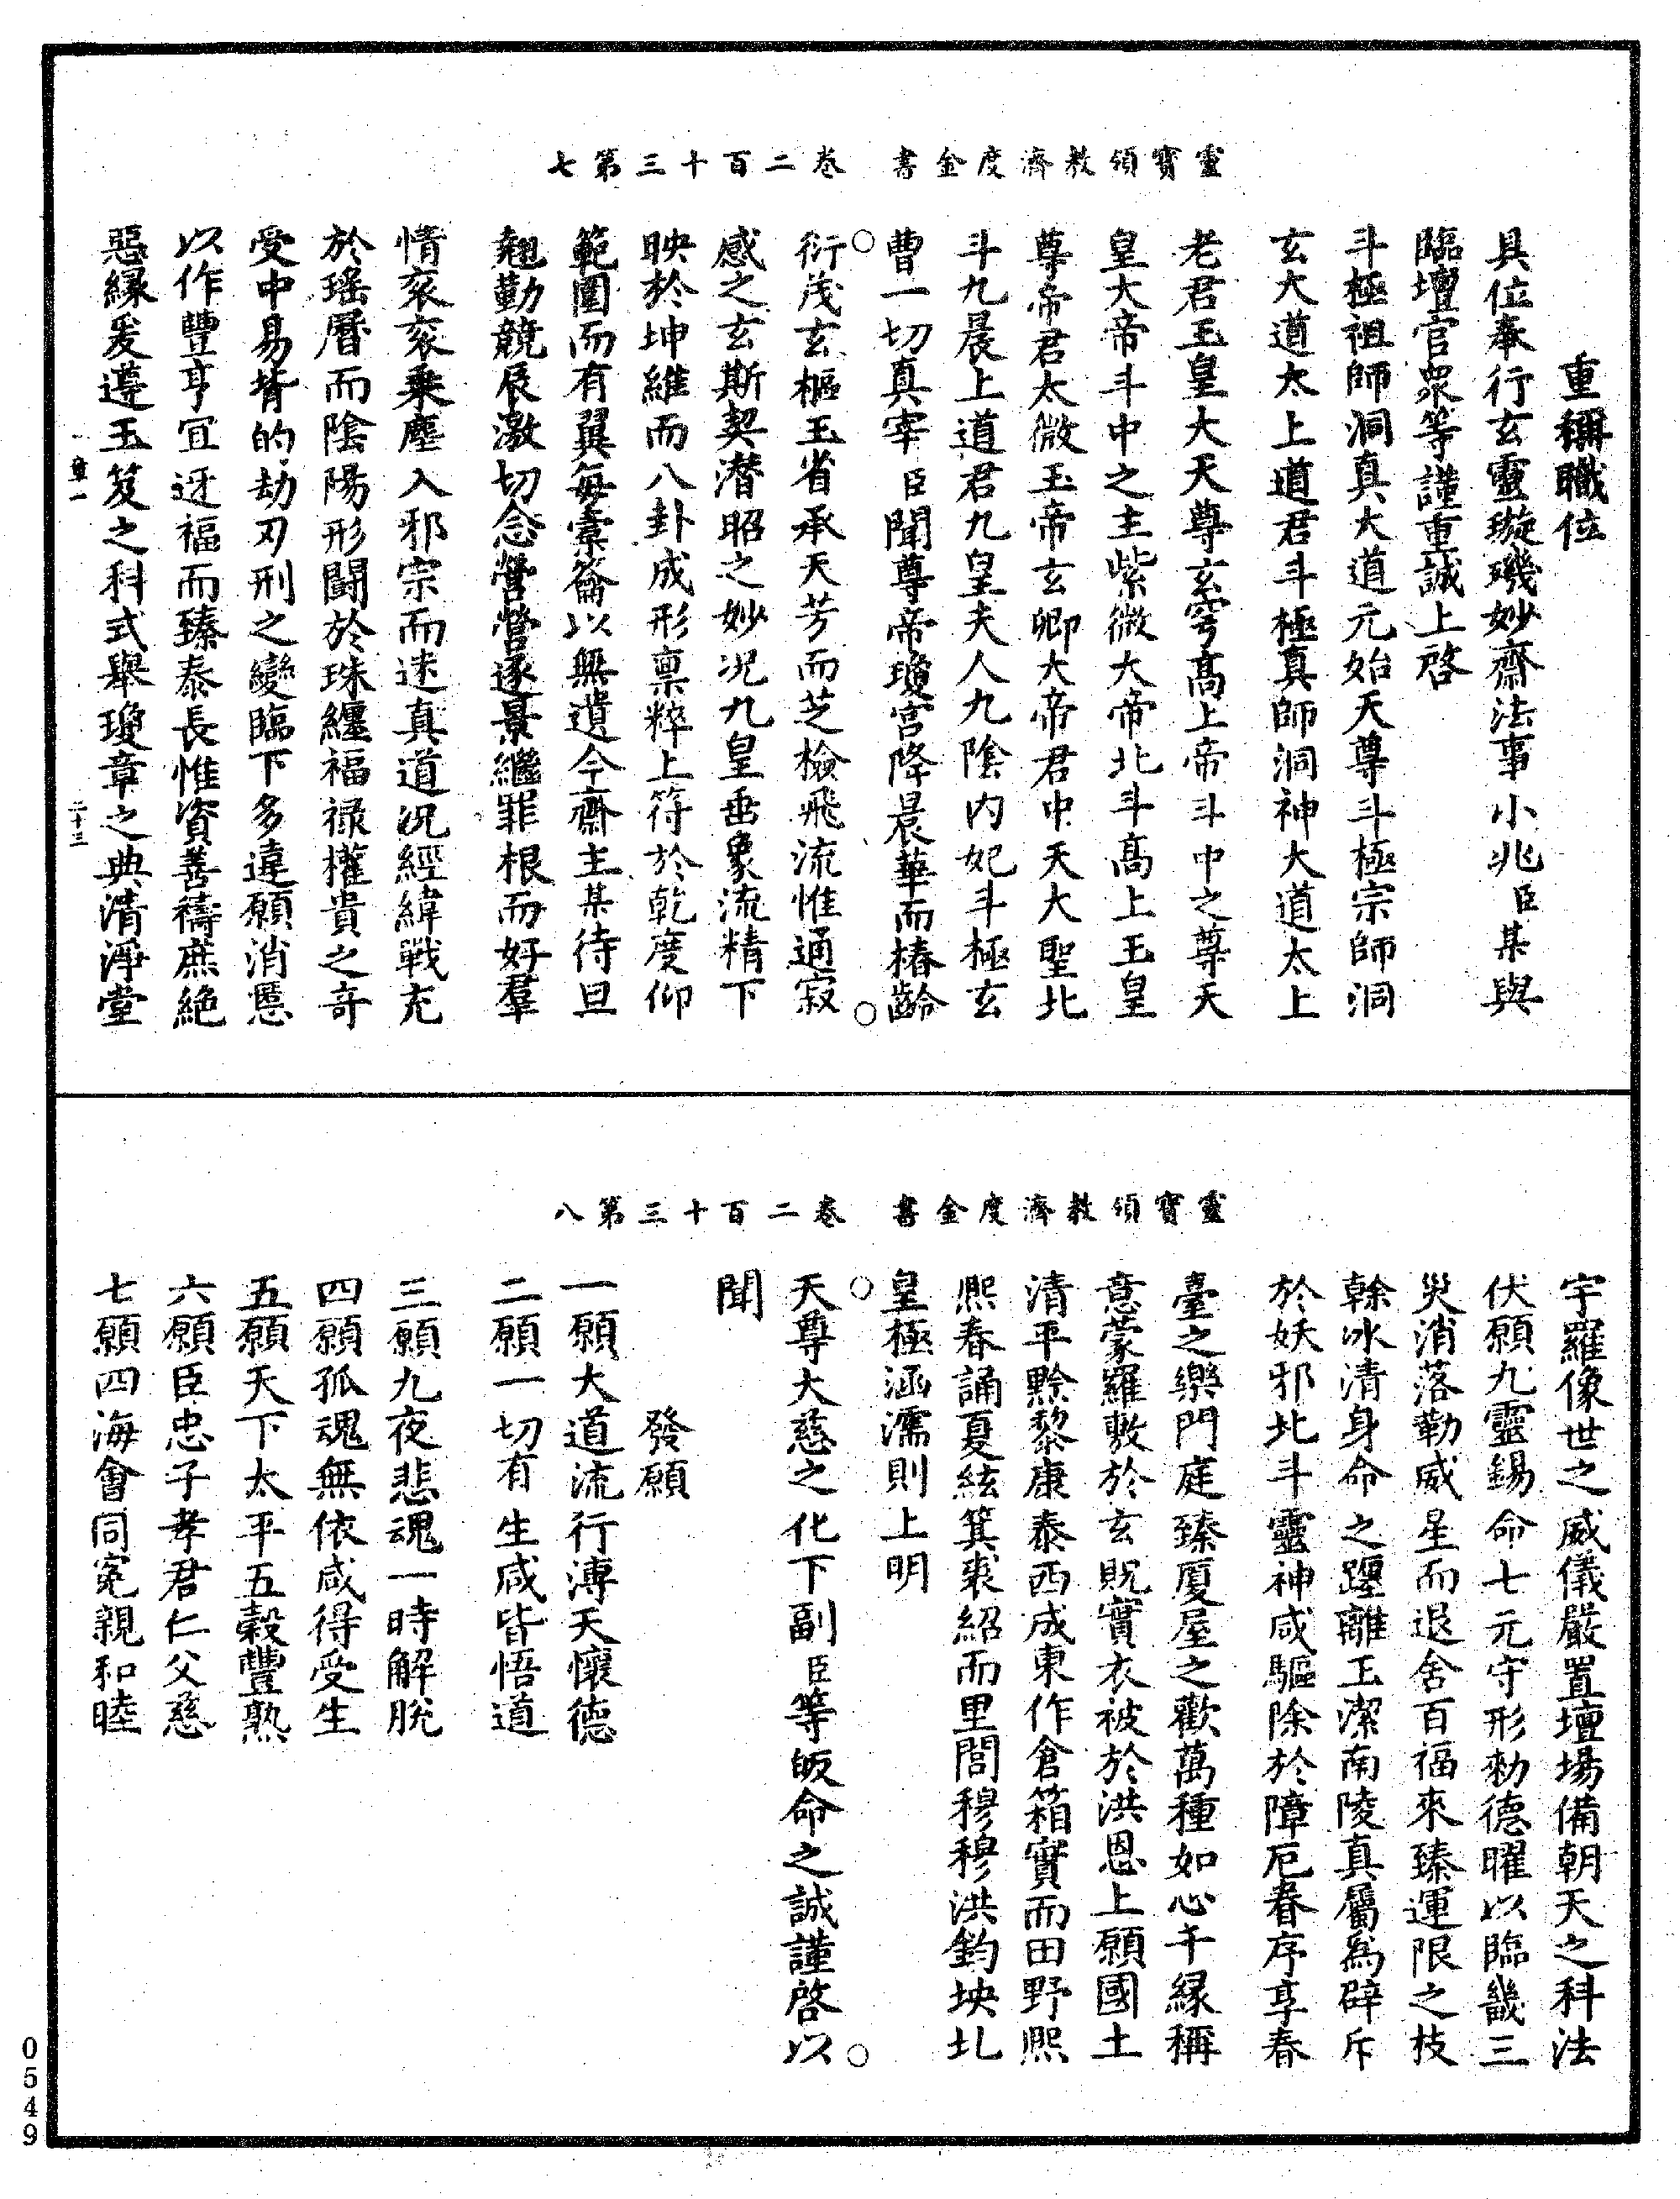 靈寶領教濟度金書　卷二百十三第七
重稱職位
具位奉行玄靈璇璣妙齋法事小兆臣某與
臨壇官衆等謹重誠上啓
斗極祖師洞真大道元始天尊斗極宗師洞
玄大道太上道君斗極真師洞神大道太上
老君玉皇大天尊玄穹高上帝斗中之尊天
皇大帝斗中之主紫微大帝北斗高上玉皇
尊帝君太微玉帝玄卿大帝君中天大聖北
斗九晨上道君九皇夫人九陰内妃斗極玄
曹一切真宰臣聞尊帝瓊宮降晨華而椿齡
衍茂玄樞玉省承天芳而芝檢飛流惟通寂
感之玄斯契潜昭之妙况九皇垂象流精下
映於坤維而八卦成形稟粹上符於乾度仰
範圍而有翼每橐籥以無遺今齋主某待旦
翹勤競辰激切念營營逐景繼罪根而好羣
情衮衮乗塵入邪宗而迷真道况經緯戰充
於瑤曆而陰陽形鬬於珠纏福禄權貴之奇
受中易揹的劫刃刑之變臨下多違願消慝
以作豐亨冝迓福而臻泰長惟資善禱庶絶
惡緣爰遵玉笈之科式舉瓊章之典清淨堂
章一　二十三
靈寶領教濟度金書　卷二百十三第八
宇羅像世之威儀嚴置壇場備朝天之科法
伏願九靈錫命七元守形勑德曜以臨畿三
災消落勒威星而退舍百福來臻運限之枝
幹冰清身命之躔離玉潔南陵真屬爲辟斥
於妖邪北斗靈神咸驅除於障厄眷序享春
臺之樂門庭臻廈屋之歡萬種如心千緣稱
意蒙羅敷於玄貺實衣被於洪恩上願國土
清平黔黎康泰西成東作倉箱實而田野熙
熙春誦夏絃箕裘紹而里閭穆穆洪鈞坱圠
皇極涵濡則上明
天尊大慈之化下副臣等皈命之誠謹啓以
聞
發願
一願大道流行溥天懷德
二願一切有生咸皆悟道
三願九夜悲魂一時解脫
四願孤魂無依咸得受生
五願天下太平五穀豐熟
六願臣忠子孝君仁父慈
七願四海會同寃親和睦
0549